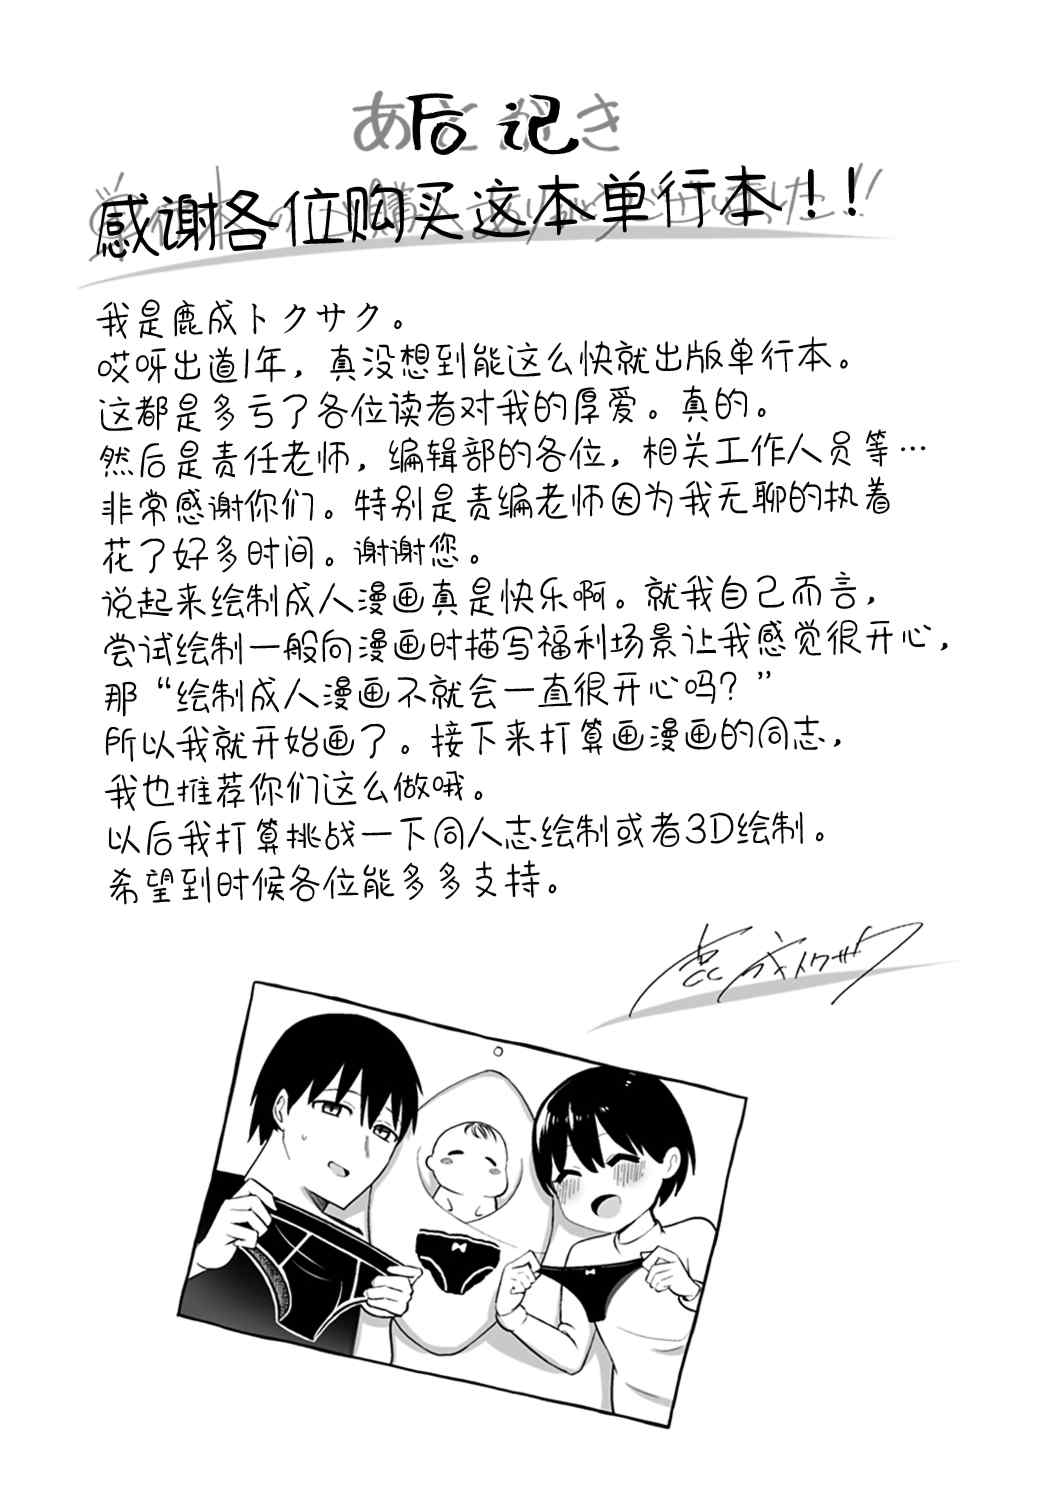 后记
感谢各位购买这本单行本!!
我是鹿成トクサク。
哎呀出道1年，真没想到能这么快就出版单行本。
这都是多亏了各位读者对我的厚爱。真的。
然后是责任老师，编辑部的各位，相关工作人员等…
非常感谢你们。特别是责编老师因为我无聊的执着
花了好多时间。谢谢您。
说起来绘制成人漫画真是快乐啊。就我自己而言，
尝试绘制一般向漫画时描写福利场景让我感觉很开心，
那“绘制成人漫画不就会一直很开心吗？”
所以我就开始画了。接下来打算画漫画的同志，
我也推荐你们这么做哦。
以后我打算挑战一下同人志绘制或者3D绘制。
希望到时候各位能多多支持。
鹿成トクサク